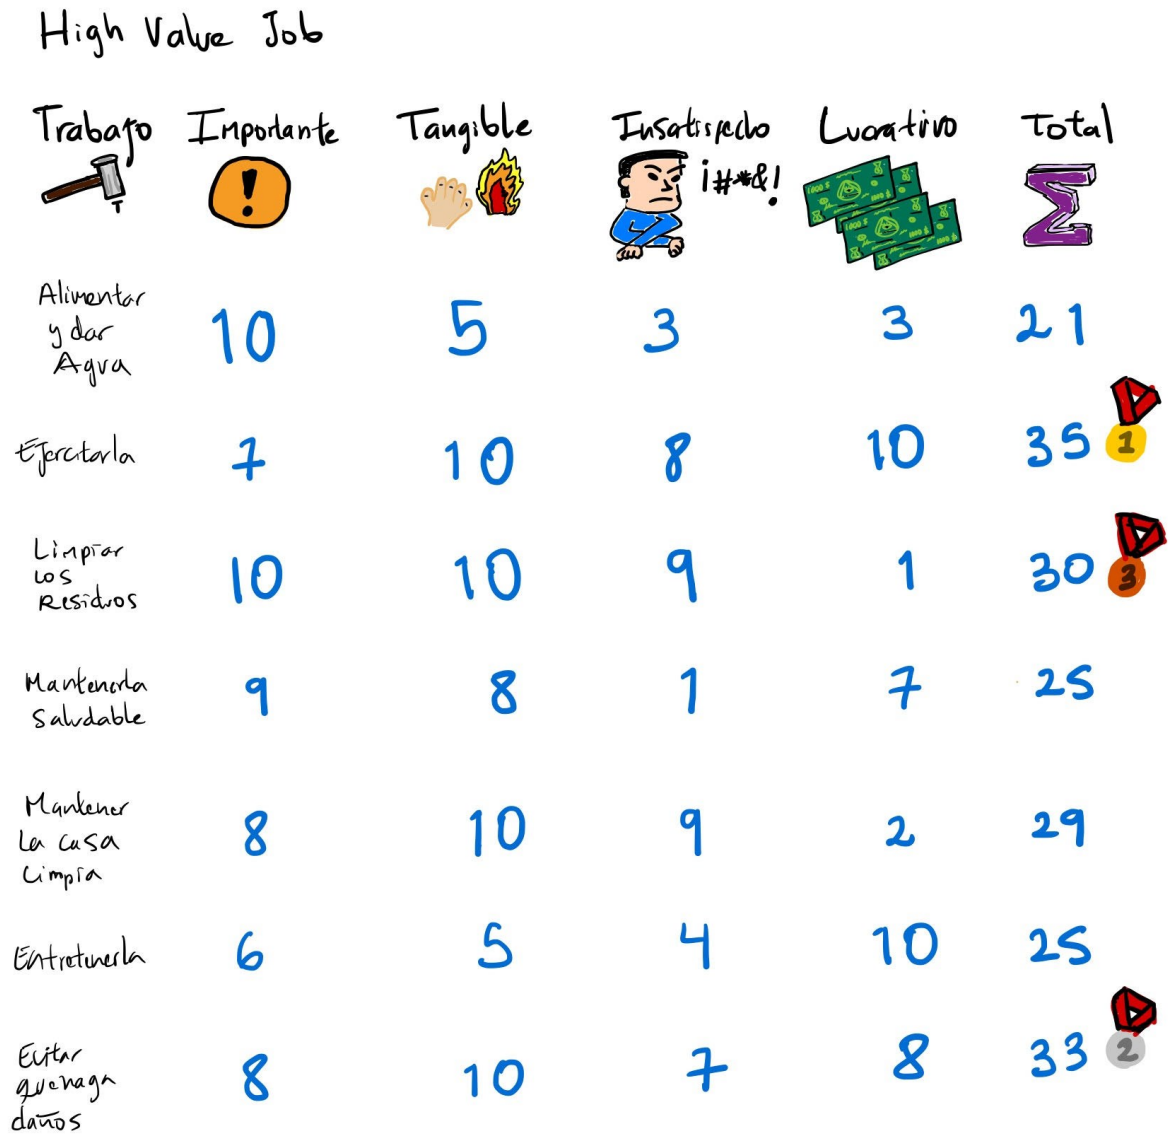 High Value Job
Trabajo Importante Tangible Insatisfecho Lucrativo Total
! ¡#*&!
1000 $ 1000 $ 1000 $ 1000 $
Alimentar
y dar
Agua
10 5 3 3 21
Ejercitarla 7 10 8 10 35 1
Limpiar
Los
Residuos
10 10 9 1 30 3
Mantenerla
Saludable
9 8 1 7 25
Mantener
La casa
Limpia
8 10 9 2 29
Entretenerla 6 5 4 10 25
Evitar
que haga
daños
8 10 7 8 33 2